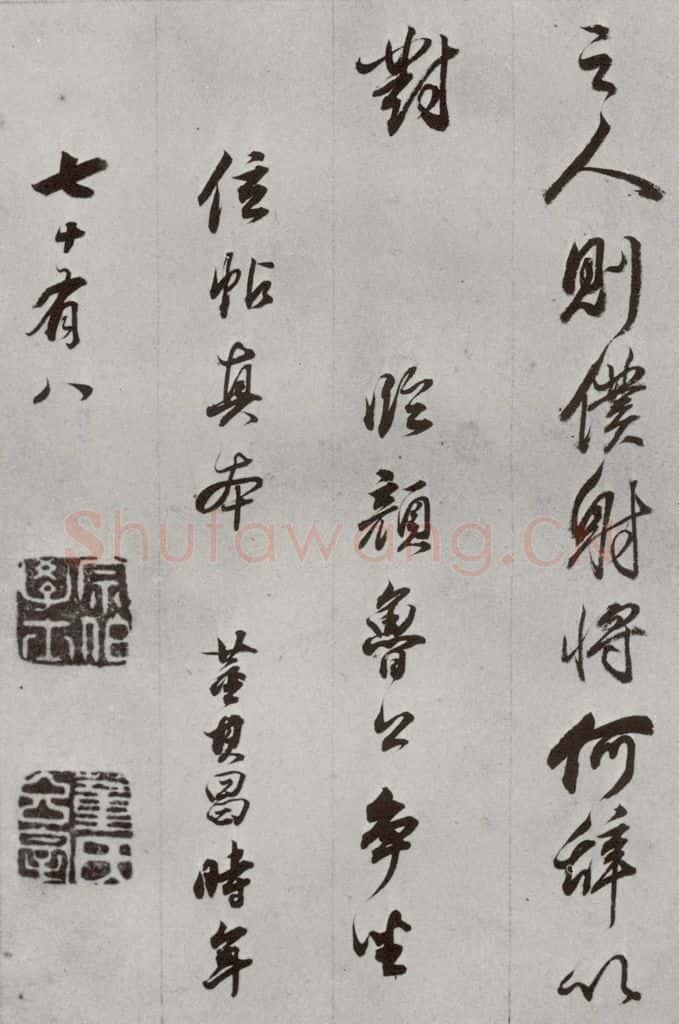 之人則僕射將何辭以
對 臨顏魯公爭坐
位帖真本 董其昌時年
七十有八
宗伯學士
董氏玄宰
Shufawang.Cn